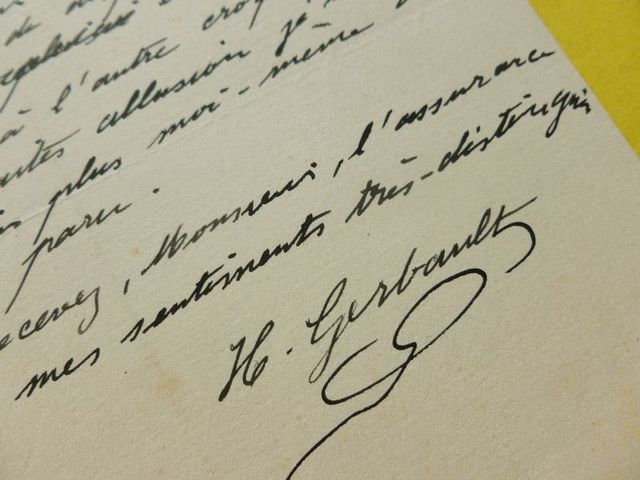 de
à l'autre
allusion je
plus moi-même
paru.
recevez, Monsieur, l'assurance
mes sentiments très-distingués
H. Gerbault